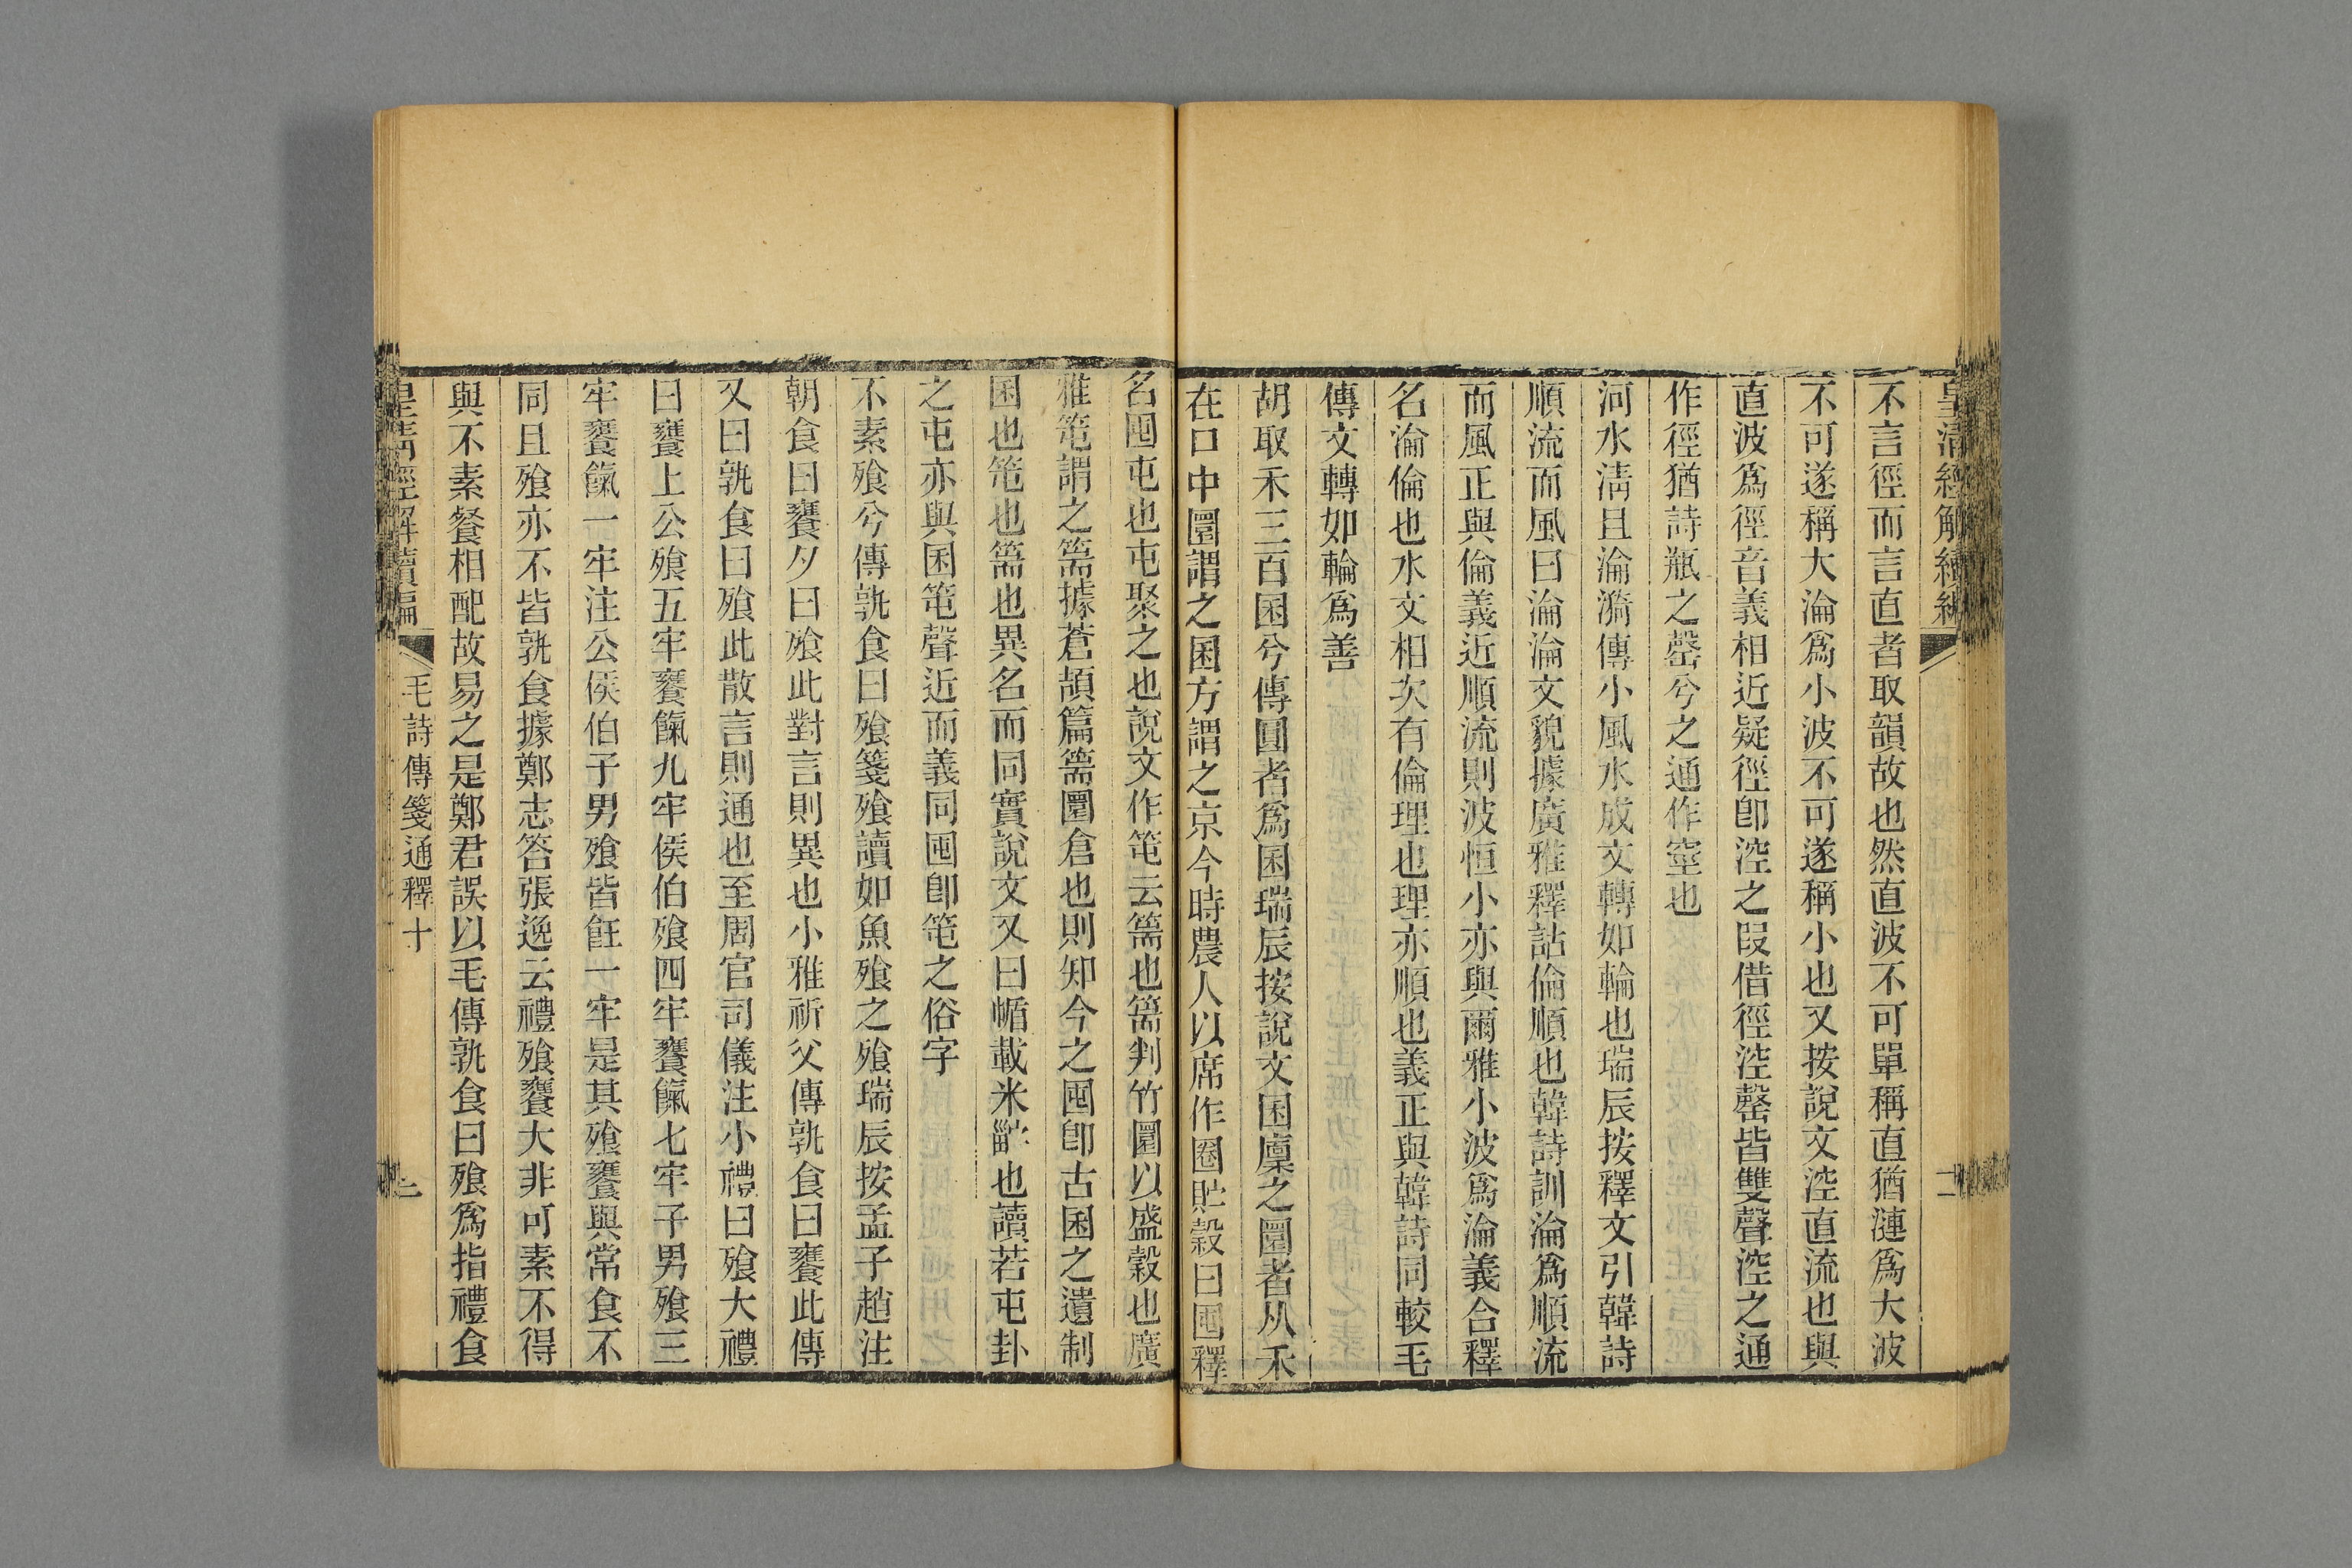 皇清經解續編
不言徑而言直者取韻故也然直波不可單稱直猶漣爲大波
不可遂稱大淪爲小波不可遂稱小也又按說文涳直流也與
直波爲徑音義相近疑徑卽涳之叚借徑涳罄皆雙聲涳之通
作徑猶詩瓶之罄兮之通作窒也
河水淸且淪漪傳小風水成文轉如輪也瑞辰按釋文引韓詩
順流而風曰淪淪文貌據廣雅釋詁倫順也韓詩訓淪爲順流
而風正與倫義近順流則波恒小亦與爾雅小波爲淪義合釋
名淪倫也水文相次有倫理也理亦順也義正與韓詩同較毛
傳文轉如輪爲善
胡取禾三百囷兮傳圓者爲囷瑞辰按說文囷廩之圜者从禾
在囗中圜謂之囷方謂之京今時農人以席作圈貯穀曰囤釋
名囤屯也屯聚之也說文作笔云篅也篅判竹圜以盛穀也廣
雅笔謂之篅據蒼頡篇篅圜倉也則知今之囤卽古囷之遺制
囷也笔也篅也異名而同實說文又曰㡒載米䉛也讀若屯卦
之屯亦與囷笔聲近而義同囤卽笔之俗字
不素飧兮傳孰食曰飧箋飧讀如魚飧之飧瑞辰按孟子趙注
朝食曰饔夕曰飧此對言則異也小雅祈父傳孰食曰饔此傳
又曰孰食曰飧此散言則通也至周官司儀注小禮曰飧大禮
曰饔上公飧五牢饔餼九牢侯伯飧四牢饔餼七牢子男飧三
牢饔餼一牢注公侯伯子男飧皆飪一牢是其飧饔與常食不
同且飧亦不皆孰食據鄭志答張逸云禮飧饔大非可素不得
與不素餐相配故易之是鄭君誤以毛傳孰食曰飧爲指禮食
皇淸經解續編
毛詩傳箋通釋十
二